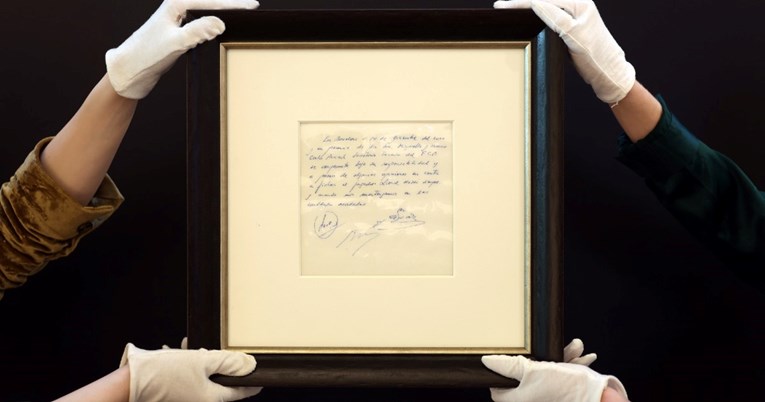 En Barcelona a 14 de diciembre del
y en presencia de los y Horacio
Carles Secretario Técnico del F.C.B.
se compromete bajo su responsabilidad y
a pesar de algunas opiniones en contra
a fichar al jugador Lionel siempre
y cuando nos mantengamos en las
cantidades acordadas